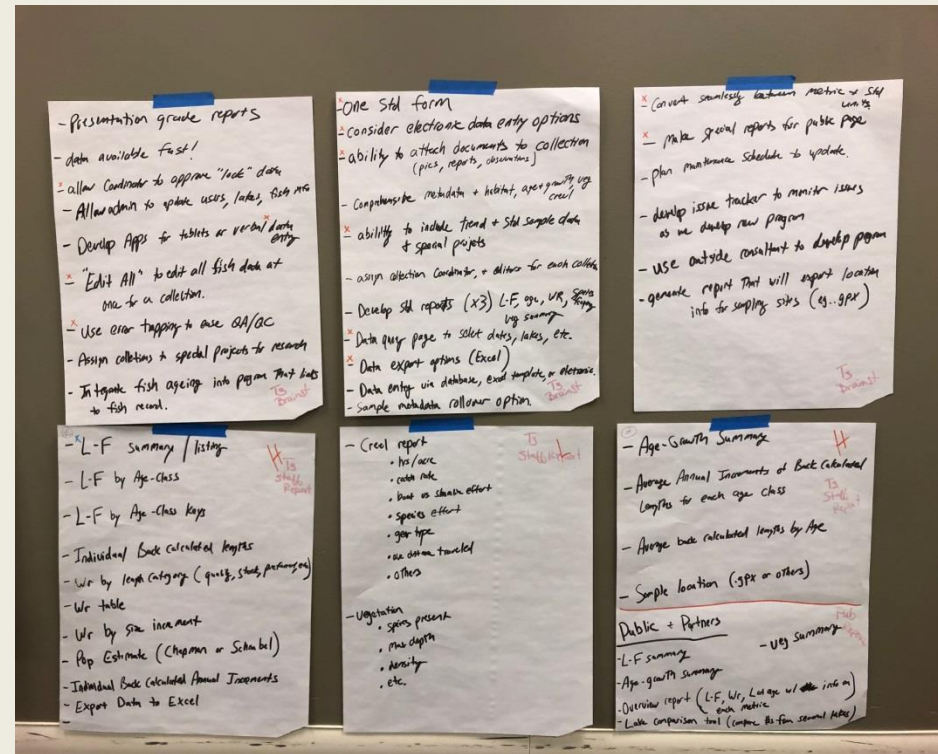 - Presentation grade reports
- data available fast!
x - allow Coordinator to approve "lock" data
- Allow admin to update users, lakes, fish info
- Develop Apps for tablets or verbal data
entry
x - "Edit All" to edit all fish data at
one for a collection.
x - Use error trapping to ease QA/QC
- Assign colletions to special projects for research
- Integrate fish ageing into program That links
to fish record.
T3
Brainst
x - One Std form
x - consider electronic data entry options
x - ability to attach documents to collection
(pics, reports, observations)
- Comprehensive metadata + habitat, age + growth, veg
creel
x - ability to include trend + Std sample data
+ special projets
- assign collection Coordinator, + editors for each colletion
- Develop std reports (x3) L-F, age, WR,
veg summary
x - Data query page to select dates, lakes, etc.
x - Data export options (Excel)
- Data entry via database, excel template, or eletronic.
- Sample metadata rollover option.
T3
Brainst
x - Convert seamlessly between metric + std
units
x - make special reports for public page
- plan maintenance schedule to update.
- develop issue tracker to monitor issues
as we develop new program
- use outside consultant to develop program
- generate report That will export location
info for sampling sites (eg...gpx)
T3
Brainst
x - L-F summary / listing
- L-F by Age-Class
- L-F by Age-Class Keys
- Individual Back calculated lengths
- Wr by length category (quality, stock, preferred, etc)
- Wr table
- Wr by size increment
- Pop Estimate (Chapman or Schnabel)
- Individual Back Calculated Annual Increments
- Export Data to Excel
-
H T3
Staff
Report
- Creel report
• hrs/acre
• catch rate
• boat vs shore effort
• species effort
• gear type
• ave distance traveled
• others
- Vegetation
• spies present
• max depth
• density
• etc.
T3
Staff Report
- Age-Growth Summary
- Average Annual Increments of Back Calculated
Lengths for each age class
- Average back calculated lengths by Age
- Sample location (.gpx or others)
H
T3
Staff
Public + Partners
- L-F summary
- veg summary
- Age-growth summary
- Overview report (L-F, Wr, Lat age w/ info on
each metric
- Lake comparison tool (compare from several lakes)
Pub